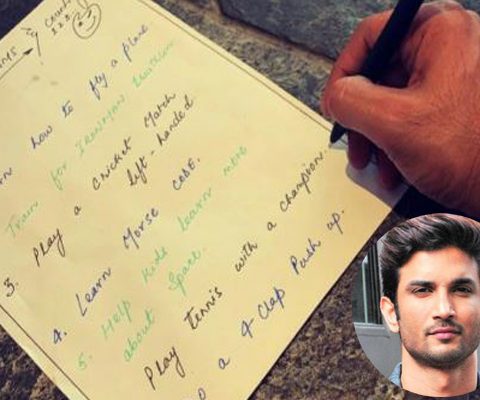 how to fly a plane
Train for IRONMAN triathlon
3. Play a cricket match
left-handed
4. Learn Morse CODE.
5. Help kids learn more
about Space.
Play tennis with a champion
a 4-Clap Push up.